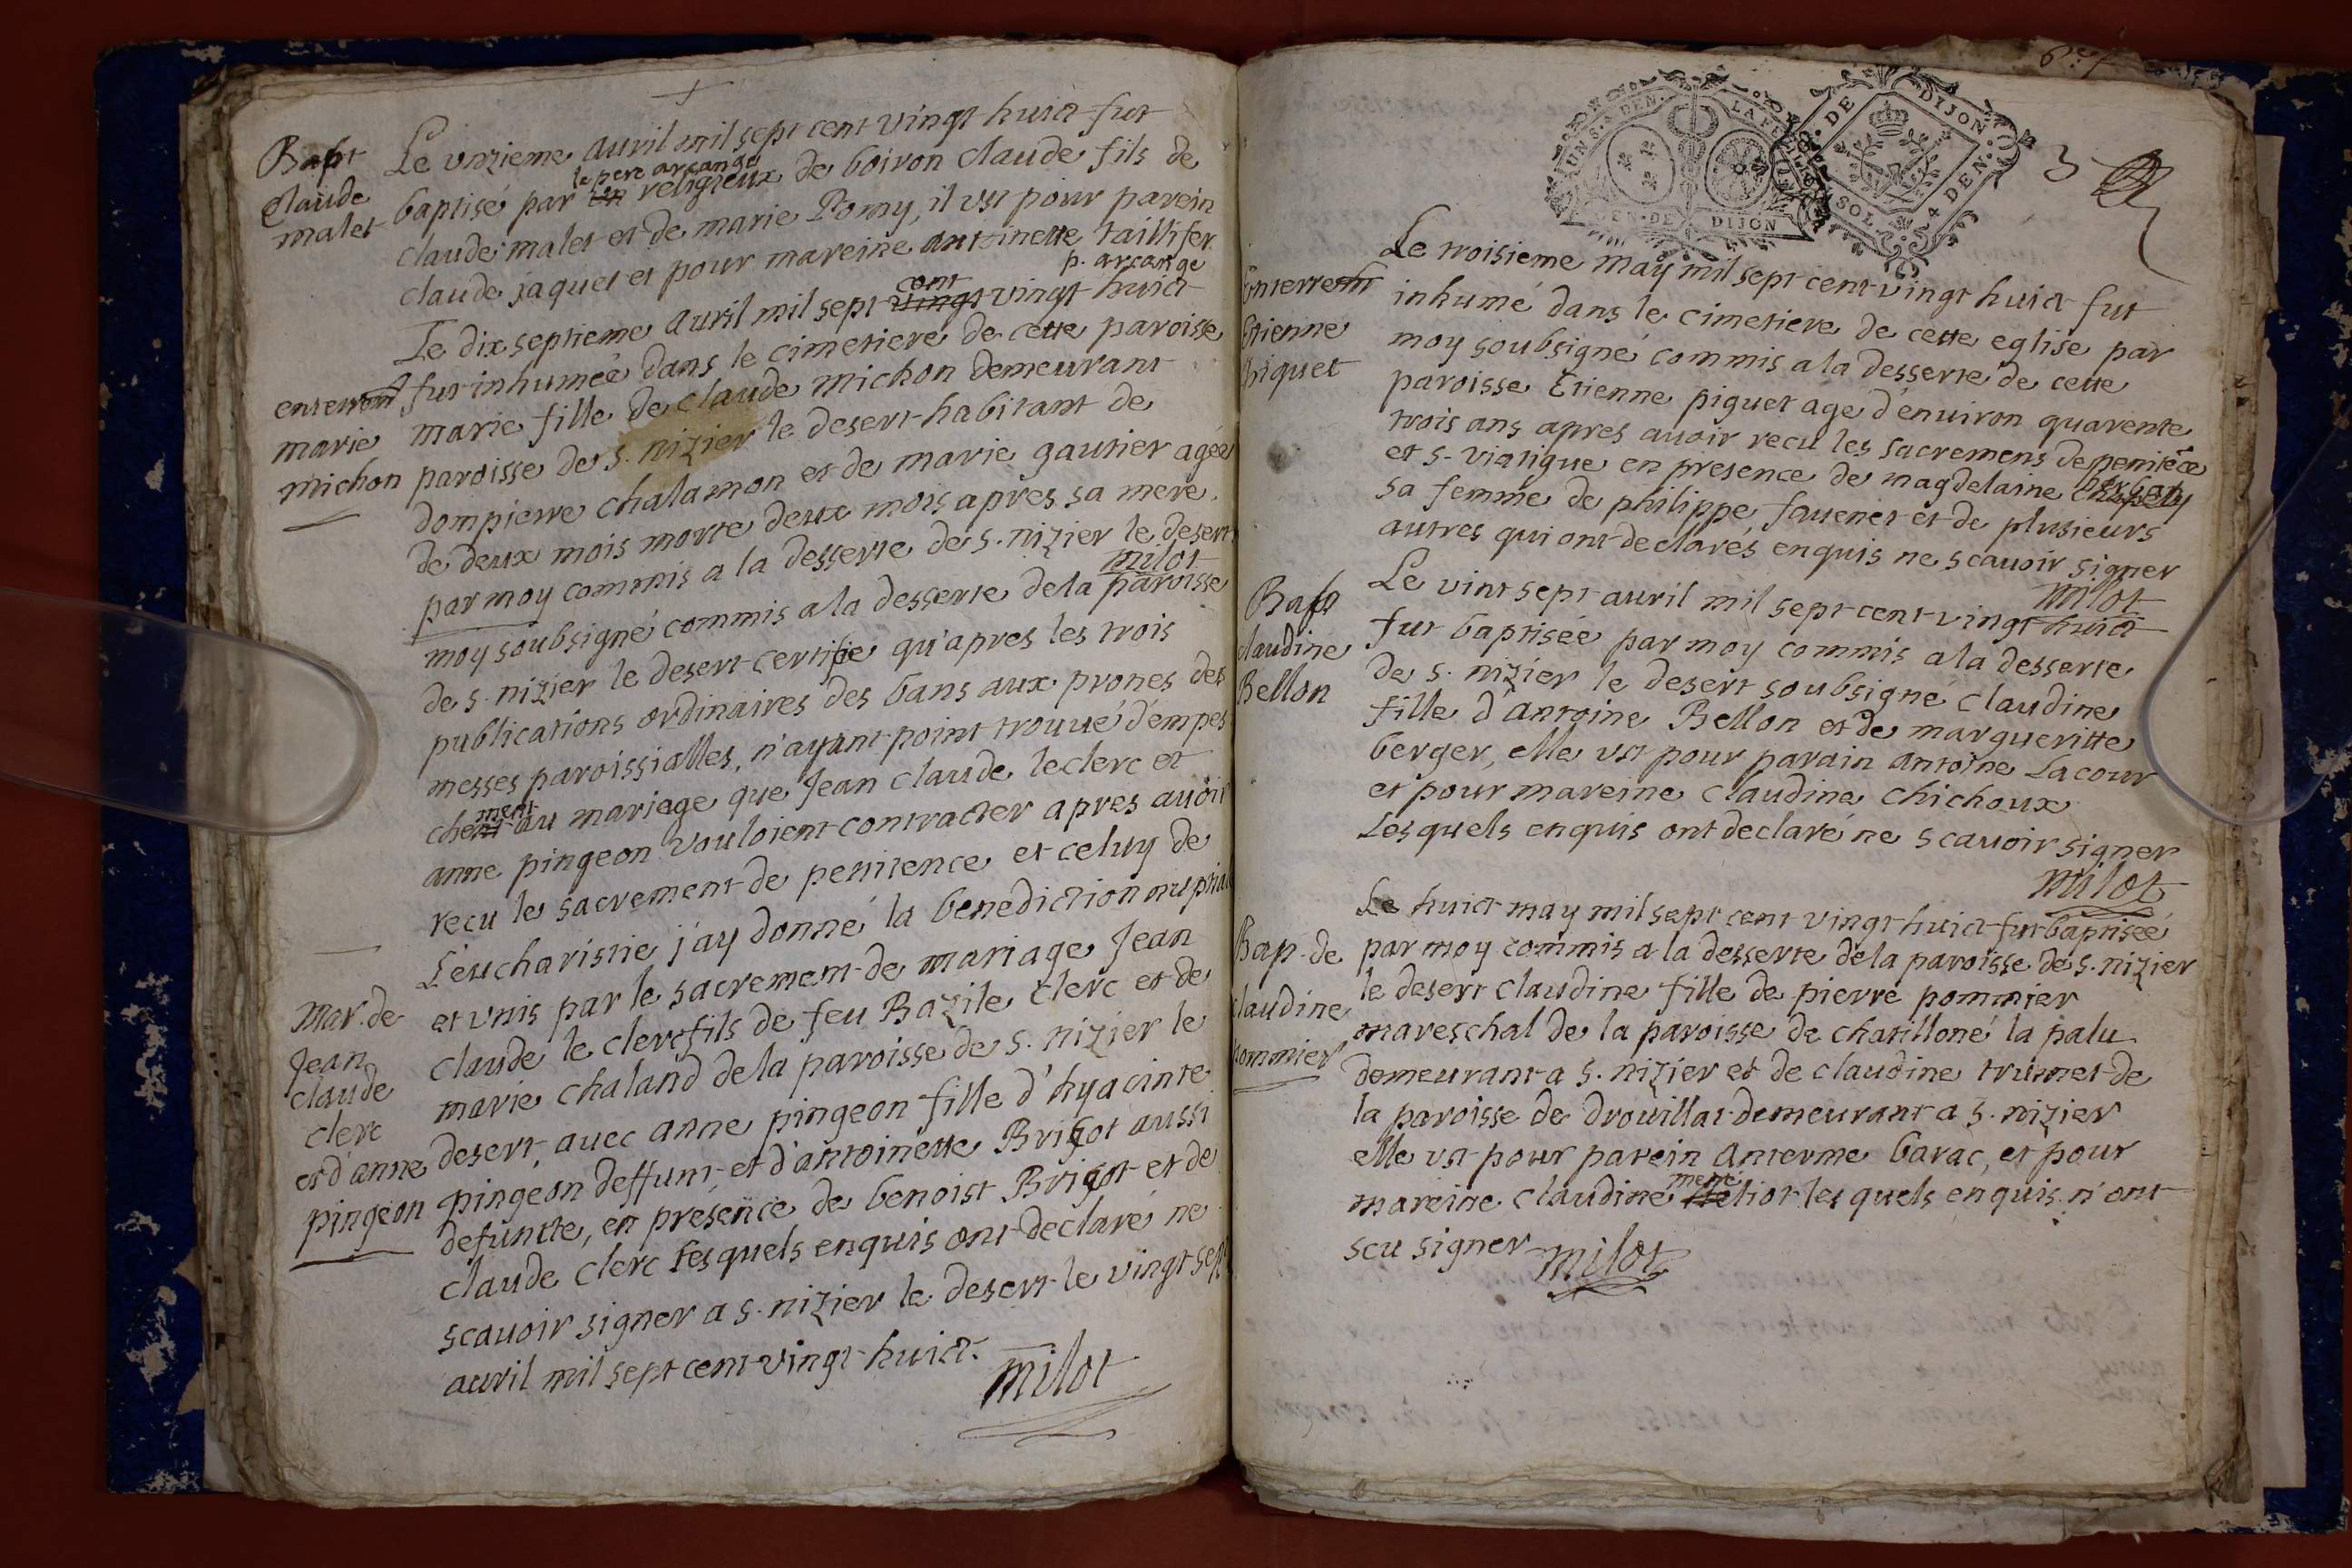 Bapt
Claude
malet
Le vnzieme auril mil sept cent vingt huict fut
le pere arcange
baptisé par un religieux de boiron claude fils de
claude malet et de marie Pomy, il vst pour parein
claude jaquet et pour mareine antoinette taillifer
p. arcange
enterremt
marie
michon
Le dix septieme auril mil sept vingt cent vingt huict
fut inhumée dans le cimetiere de cette paroisse
marie fille de claude michon demeurant
paroisse de s. nizier le desert habitant de
dompierre chalamon et de marie gautier agée
de deux mois morte deux mois apres sa mere.
par moy commis a la desserte de s. nizier le desert
milot
moy soubsigné commis a la desserte de la paroisse
de s. nizier le desert certifie qu'apres les trois
publications ordinaires des bans aux prones des
messes paroissialles, n'ayant point trouué d'empes
chement au mariage que Jean claude leclerc et
anne pingeon vouloient contracter apres auoir
recu le sacrement de penitence et celuy de
L'eucharistie j'ay donné la benediction nuptial
Mar. de
Jean
claude
clerc
et d'anne
pingeon
et vnis par le sacrement de mariage Jean
claude le clerc fils de feu Bazile clerc et de
marie chaland de la paroisse de s. nizier le
desert, avec anne pingeon fille d'hyacinte
pingeon deffunt, et d'antoinette Brigot aussi
defuncte, en présence de benoist Brigot et de
claude clerc lesquels enquis ont declaré ne
scauoir signer a s. nizier le desert le vingt sept
auril mil sept cent vingt huict.
milot
GEN. DE DIJON
UN S. 4 DEN.
G. DE DIJON
SOL 4 DEN.
3
Enterremt
Etienne
piquet
Le troisieme may mil sept cent vingt huict fut
inhumé dans le cimetiere de cette eglise par
moy soubsigné commis a la desserte de cette
paroisse Etienne piquet age d'enuiron quarente
trois ans apres auoir recu les sacremens de penitēce
et s. viatique en presence de magdelaine
sa femme de philippe fauenet et de plusieurs
autres qui ont declarés enquis ne scauoir signer
milot
Bap
claudine
Bellon
Le vint sept auril mil sept cent vingt huict
fut baptisée par moy commis a la desserte
de s. nizier le desert soubsigné claudine
fille d'antoine Bellon et de margueritte
berger, elle vst pour parain antoine Lacour
et pour mareine claudine chichoux
Lesquels enquis ont declaré ne scauoir signer
milot
Bap. de
claudine
pommier
Le huict may mil sept cent vingt huict fut baptisée
par moy commis a la desserte de la paroisse de s. nizier
le desert claudine fille de pierre pommier
mareschal de la paroisse de chatilloné la palu
demeurant a s. nizier et de claudine trumet de
la paroisse de drouillat demeurant a s. nizier
elle vst pour parein anterme barac, et pour
mareine claudine lesquels enquis n'ont
scu signer milot